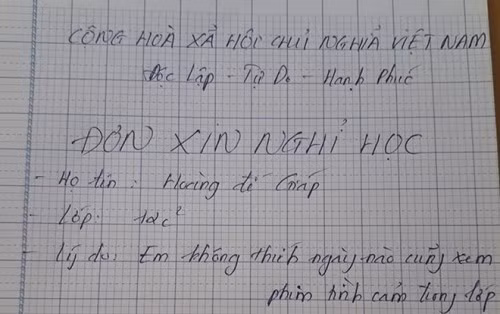 CÔNG HOÀ XÃ HỘI CHỦ NGHĨA VIỆT NAM
Độc Lập - Tự Do - Hanh Phúc
ĐƠN XIN NGHỈ HỌC
- Họ tên: Hương Giáp
- Lớp: 12c²
- Lý do: Em không thích ngày nào cũng xem
phim tình cảm trong lớp